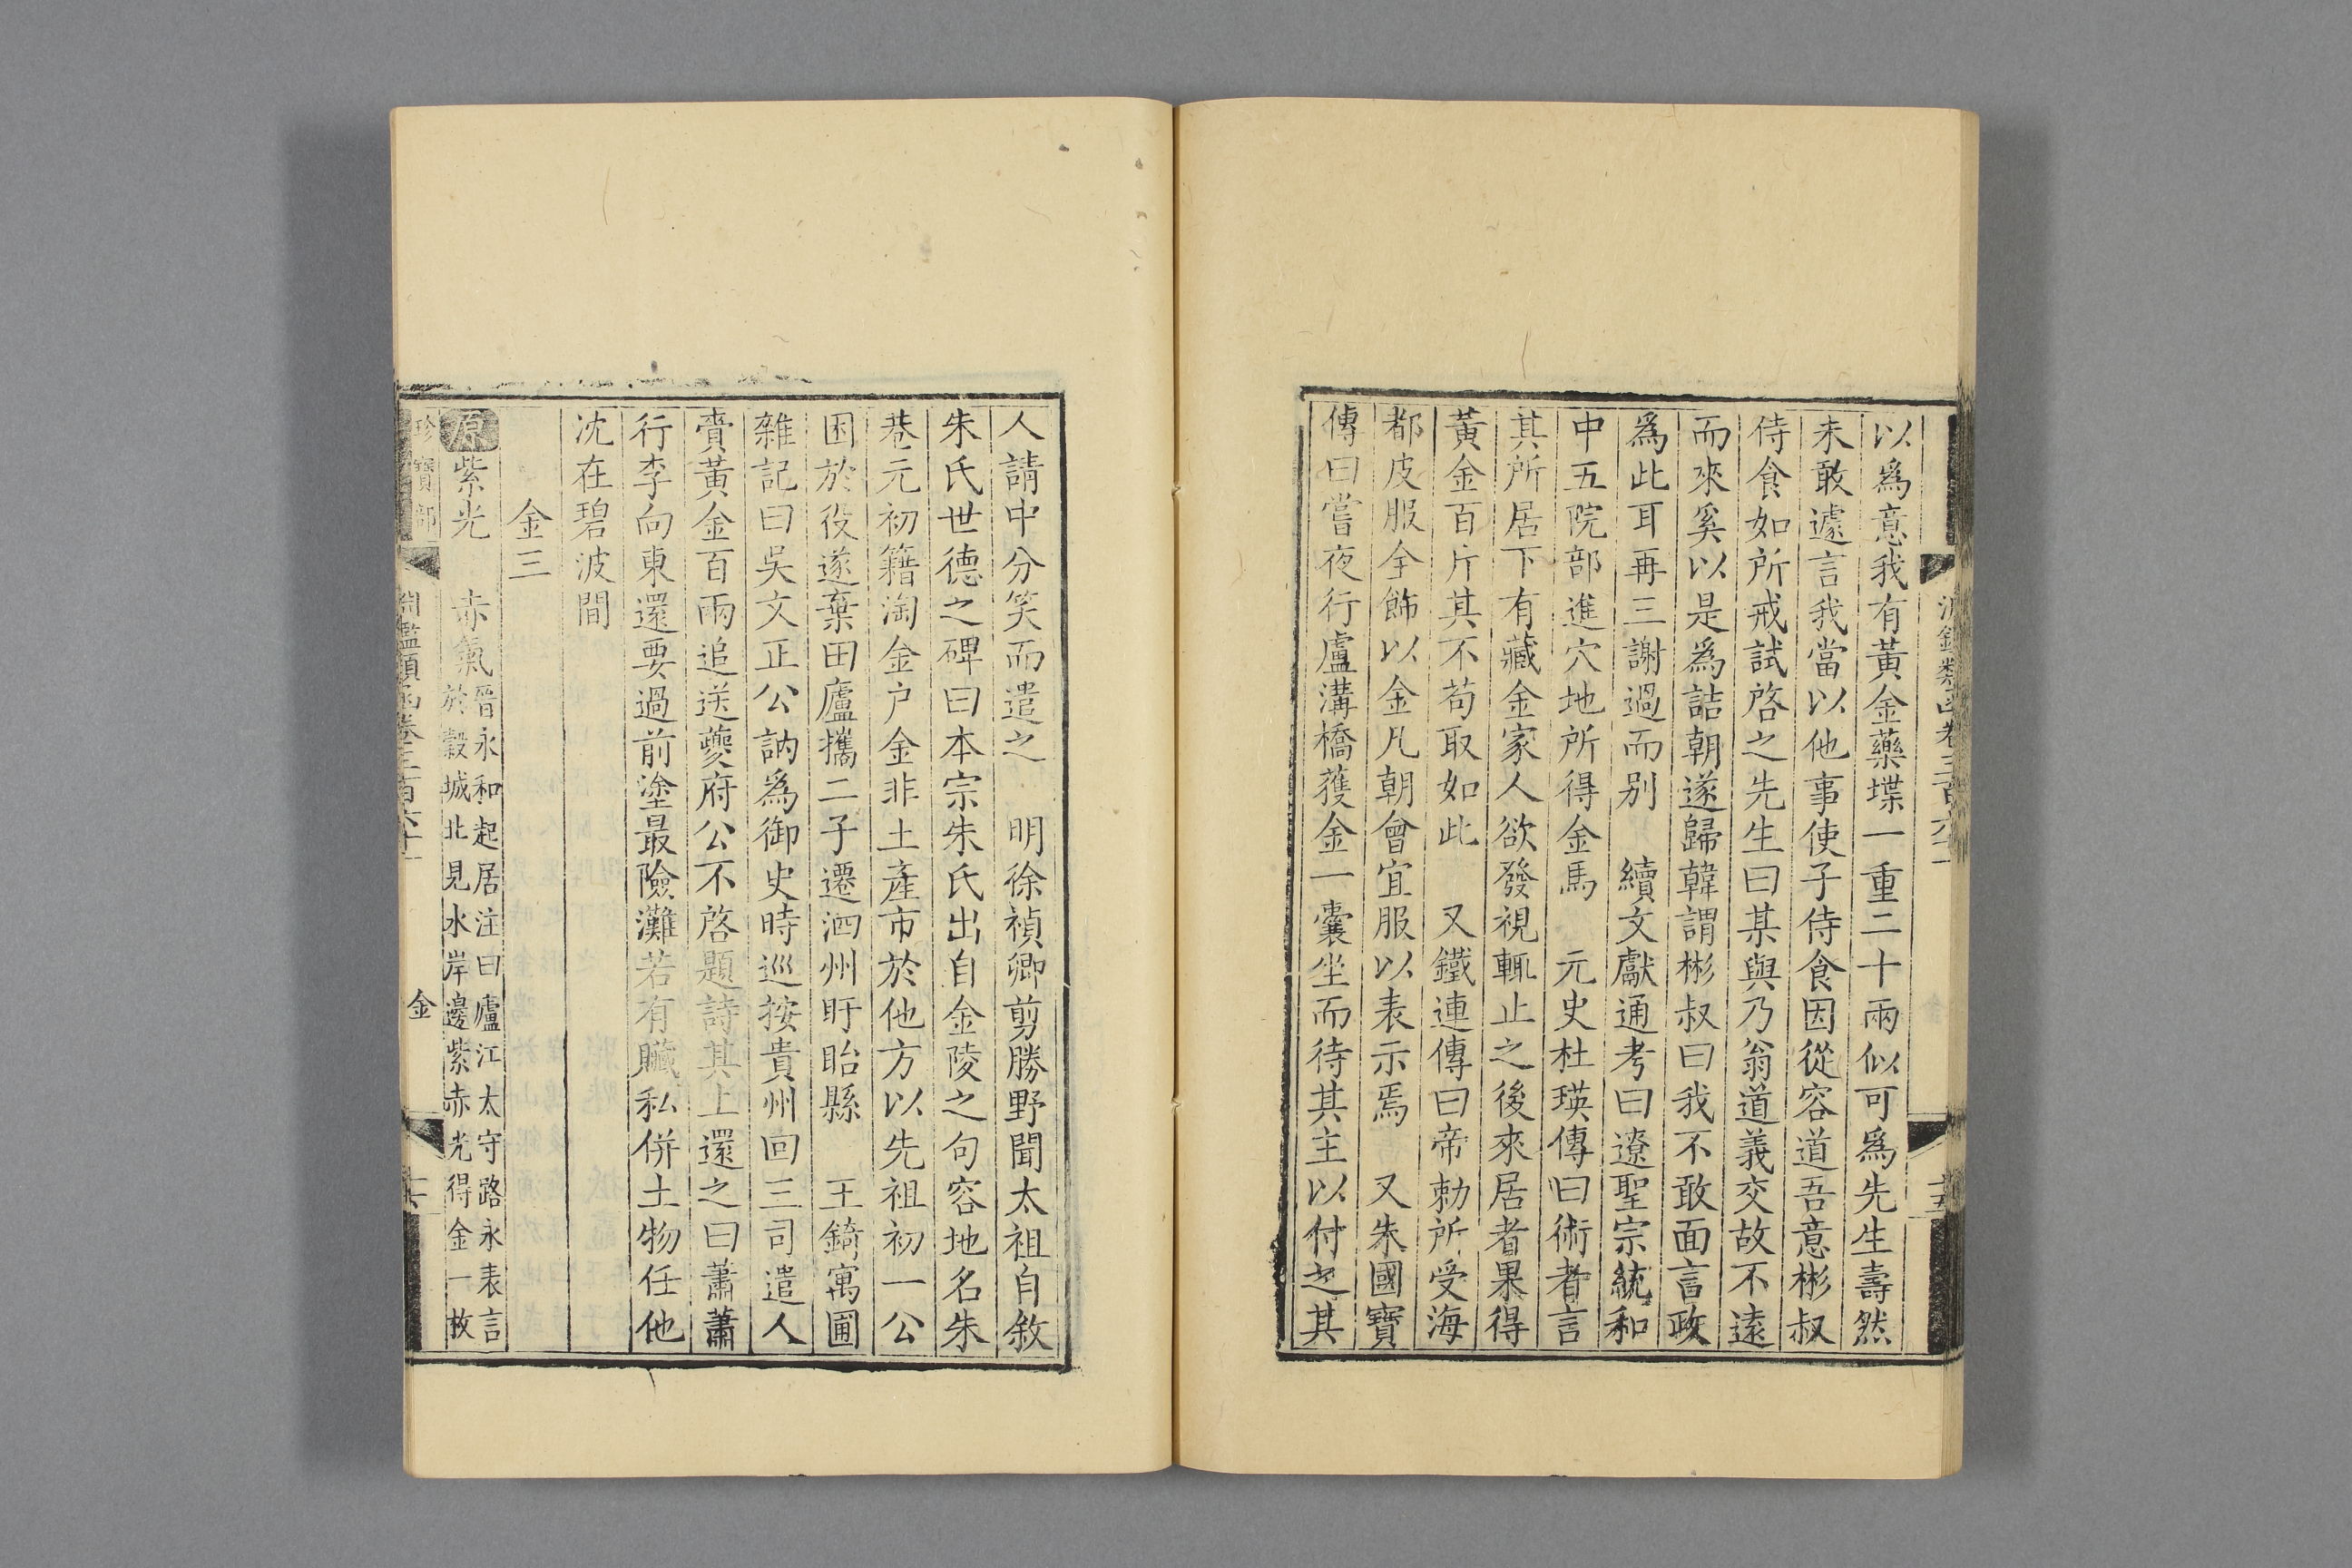 以爲意我有黃金藥堞一重二十兩似可爲先生壽然
未敢遽言我當以他事使子侍食因從容道吾意彬叔
侍食如所戒試啓之先生曰某與乃翁道義交故不遠
而來奚以是爲詰朝遂歸韓謂彬叔曰我不敢面言政
爲此耳再三謝過而别　續文獻通考曰遼聖宗統和
中五院部進穴地所得金馬　元史杜瑛傳曰術者言
其所居下有藏金家人欲發視輒止之後來居者果得
黃金百斤其不苟取如此　又鐵連傳曰帝勅所受海
都皮服全飾以金凡朝會宜服以表示焉　又朱國寶
傳曰嘗夜行盧溝橋獲金一囊坐而待其主以付之其
人請中分笑而遣之　明徐禎卿剪勝野聞太祖自敘
朱氏世德之碑曰本宗朱氏出自金陵之句容地名朱
巷元初籍淘金户金非土產市於他方以先祖初一公
困於役遂棄田廬攜二子遷泗州盱眙縣　王錡寓圃
雜記曰吳文正公訥爲御史時巡按貴州回三司遣人
賫黃金百兩追送夔府公不啓題詩其上還之曰蕭蕭
行李向東還要過前塗最險灘若有贓私併土物任他
沈在碧波間
金三
原紫光　赤氣晉永和起居注曰廬江太守路永表言
於穀城北見水岸邊紫赤光得金一枚
珍寶部　淵鑑類函卷三百六十一　金